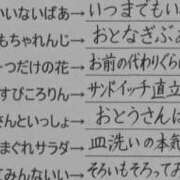 いいないばあ→いつまでもい
もちゃれんじ→おとなぎぶぁ
一つだけの花→お前の代わりぐら
すぴころりん→サンドイッチ直立
さんといっしょ→おとうさんは
まぐれサラダ→皿洗いの本気
てみんないい→そろいもそろってお